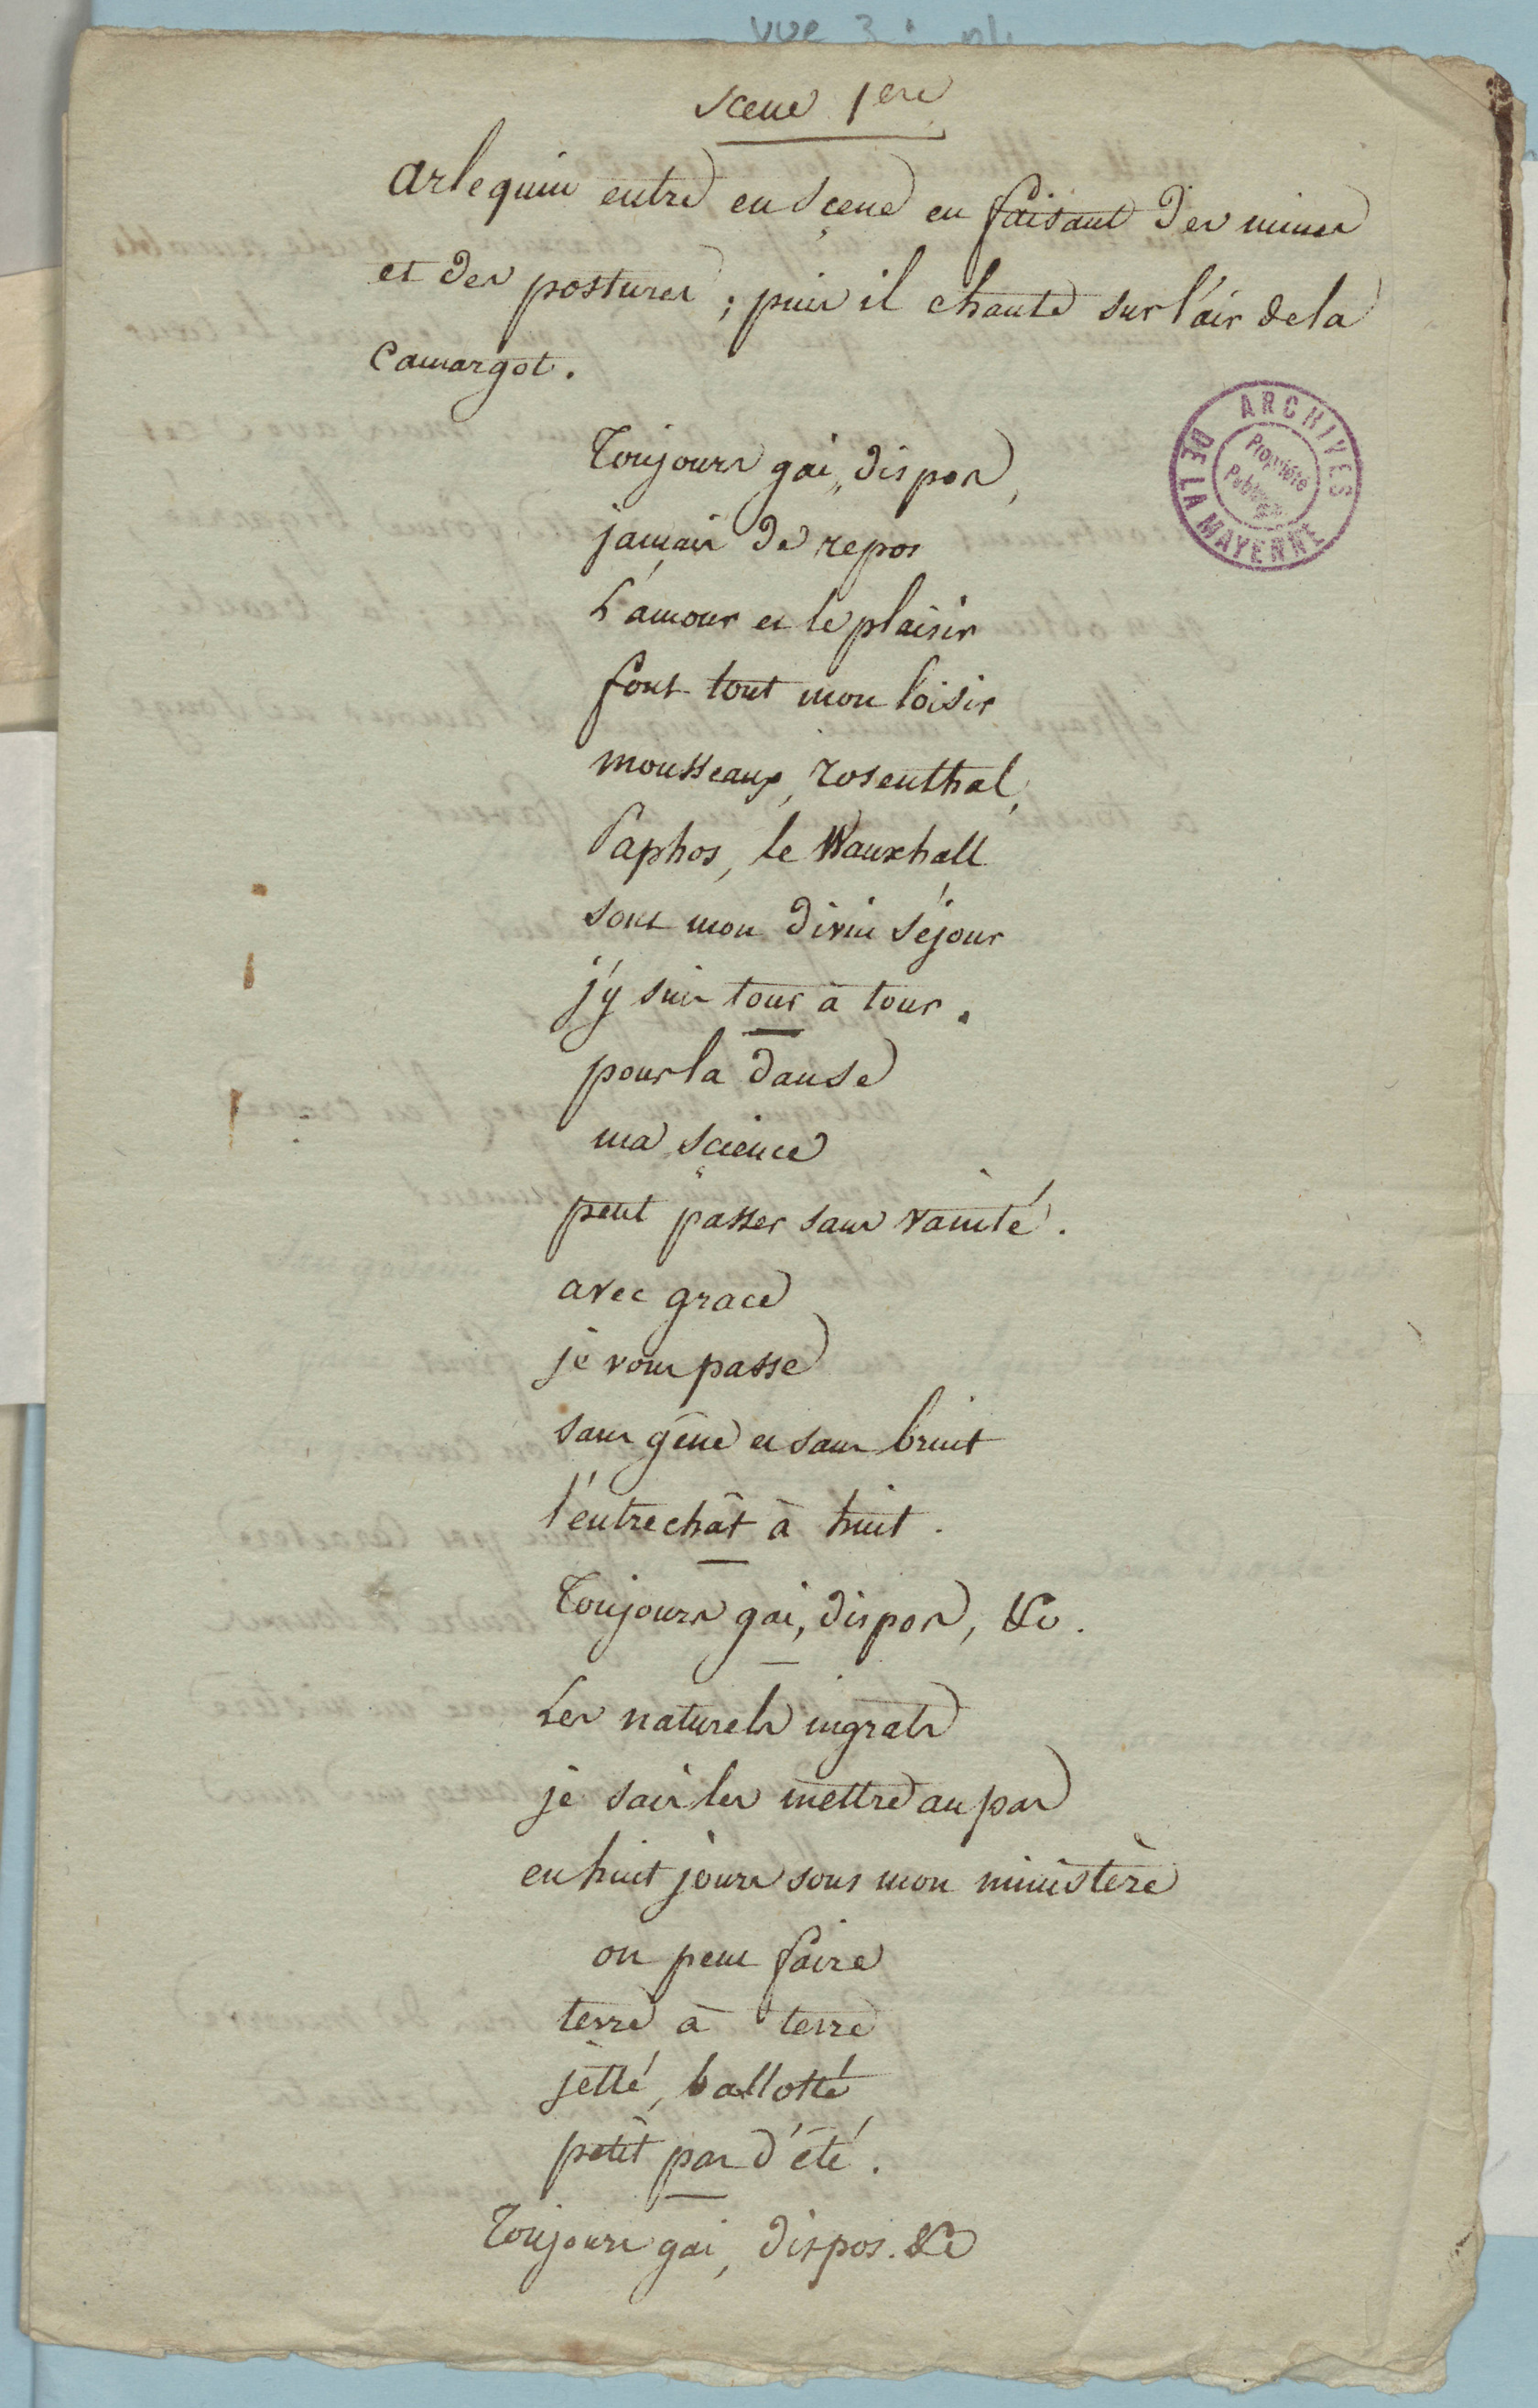 vue 3
Scene 1ere
arlequin entre en Scene en faisant des mines
et des postures ; puis il chante sur l'air de la
Camargot.
ARCHIVES DE LA MAYENNE
Propriété
Publique
Toujours gai, dispos,
jamais de repos
L'amour et le plaisir
font tout mon loisir
mousseaux, rosenthal,
Paphos, le Wauxhall
sont mon divin séjour
j'y suis tour à tour.
pour la danse
ma science
peut passer sans vanité.
avec grace
je vous passe
sans gêne et sans bruit
l'entrechât à huit.
Toujours gai, dispos, &c.
Les naturels ingrats
je sais les mettre au pas
en huit jours sous mon ministère
on peut faire
terre à terre
jetté, ballotté,
petit pas d'été.
Toujours gai, dispos. &c